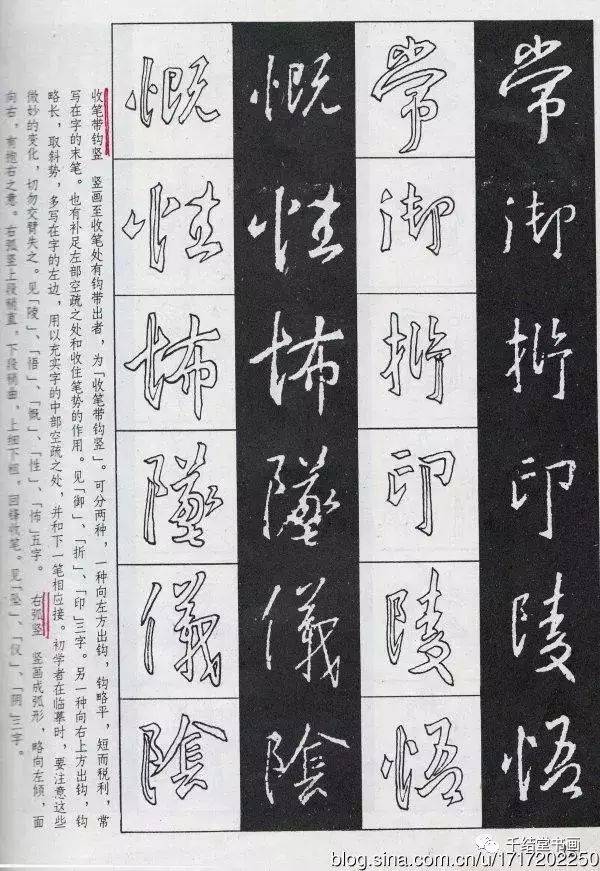 常御折印陵悟
常御折印陵悟
慨性怖墜儀陰
慨性怖墜儀陰
收笔带钩竖 竖画至收笔处有钩带出者，为「收笔带钩竖」。可分两种，一种向左方出钩，钩略平，短而税利，常
写在字的末笔。也有补足左部空疏之处和收住笔势的作用。见「御」、「折」、「印」三字。另一种向右上方出钩，钩
略长，取斜势，多写在字的左边，用以充实字的中部空疏之处，并和下一笔相应接。初学者在临摹时，要注意这些
微妙的变化，切勿交臂失之。见「陵」、「悟」、「慨」、「性」、「怖」五字。 右弧竖 竖画成弧形，略向左倾，面
向右，有抱右之意。右弧竖上段稍直，下段稍曲，上细下粗，回锋收笔。见「坠」、「仪」、「阴」三字。
千结堂书画
blog.sina.com.cn/u/1717202250